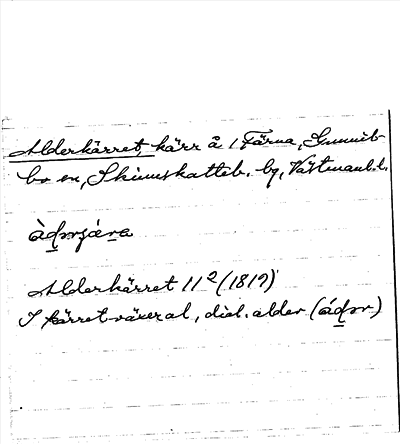 Alderkärret, kärr å 1 Färna, Gunnilb-
bo sn, Skinnskatteb. bg, Västmanl. l.
Alderkärret 11² (1819)
I kärret växer al, dial. alder